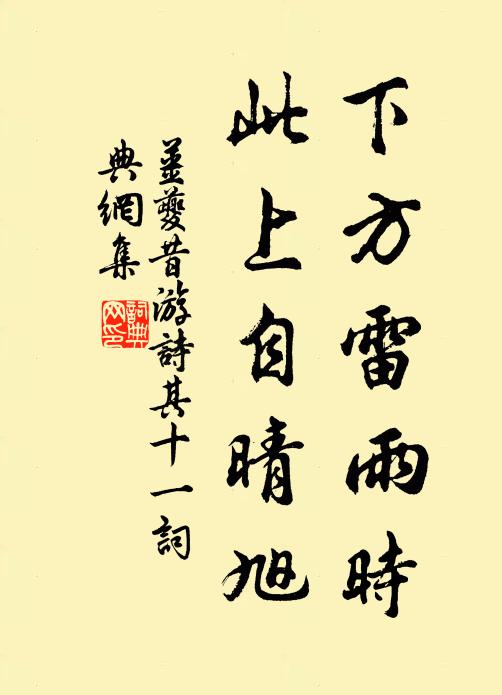 下方雷雨時
此上自晴旭
姜夔昔游詩其十一詞
典網集
詞典
网印